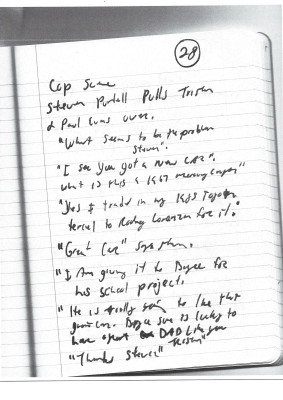 28
Cop Scene
Steven Pulls Tristen
& Paul over.
"What seems to be the problem
Steven".
"I see you got a new car".
what is this a 1967 mercury cougar"
"Yes I traded in my 1983 Toyota
tercel to Rodney Lorenzen for it."
"Great Car" says
"I Am giving it to Boyce for
his school project.
"He is going to like that
car. Boyce sure is lucky to
have a great DAD like you
"Thanks Steven"